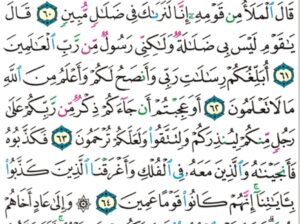 قَالَ ٱلْمَلَأُ مِن قَوْمِهِۦٓ إِنَّا لَنَرَىٰكَ فِى ضَلَٰلٍ مُّبِينٍ ٦٠ قَالَ
يَٰقَوْمِ لَيْسَ بِى ضَلَٰلَةٌ وَلَٰكِنِّى رَسُولٌ مِّن رَّبِّ ٱلْعَٰلَمِينَ
٦١ أُبَلِّغُكُمْ رِسَٰلَٰتِ رَبِّى وَأَنصَحُ لَكُمْ وَأَعْلَمُ مِنَ ٱللَّهِ
مَا لَا تَعْلَمُونَ ٦٢ أَوَعَجِبْتُمْ أَن جَآءَكُمْ ذِكْرٌ مِّن رَّبِّكُمْ عَلَىٰ
رَجُلٍ مِّنكُمْ لِيُنذِرَكُمْ وَلِتَتَّقُوا۟ وَلَعَلَّكُمْ تُرْحَمُونَ ٦٣ فَكَذَّبُوهُ
فَأَنجَيْنَٰهُ وَٱلَّذِينَ مَعَهُۥ فِى ٱلْفُلْكِ وَأَغْرَقْنَا ٱلَّذِينَ كَذَّبُوا۟
بِـَٔايَٰتِنَآ إِنَّهُمْ كَانُوا۟ قَوْمًا عَمِينَ ٦٤ ۞ وَإِلَىٰ عَادٍ أَخَاهُمْ